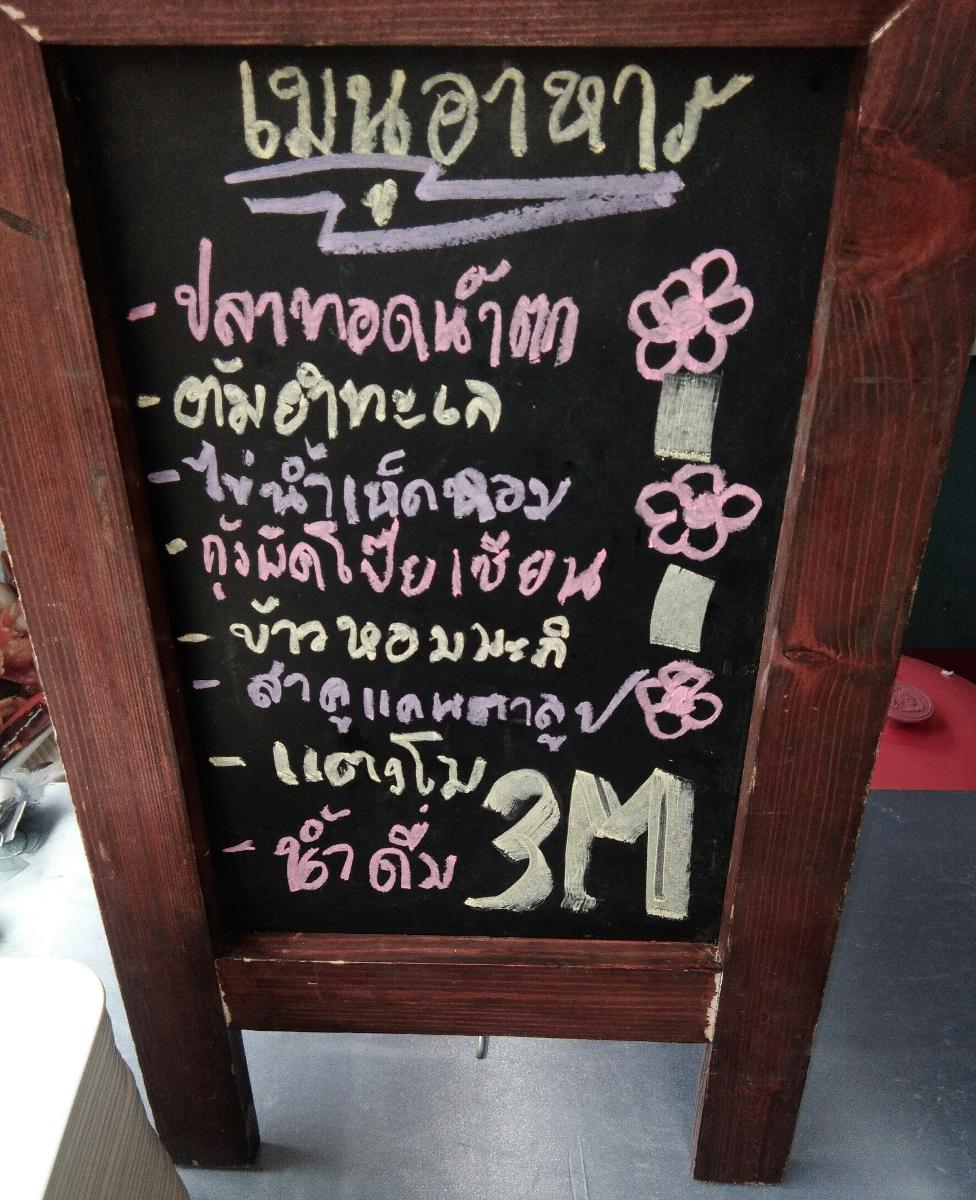 เมนูอาหาร
- ปลาทอดน้ำตก
- ต้มยำทะเล
- ไข่น้ำเห็ดหอม
- กุ้งผัดโป๊ยเซียน
- ข้าวหอมมะลิ
- สาคูแคนตาลูป
- แตงโม
- น้ำดื่ม
3M